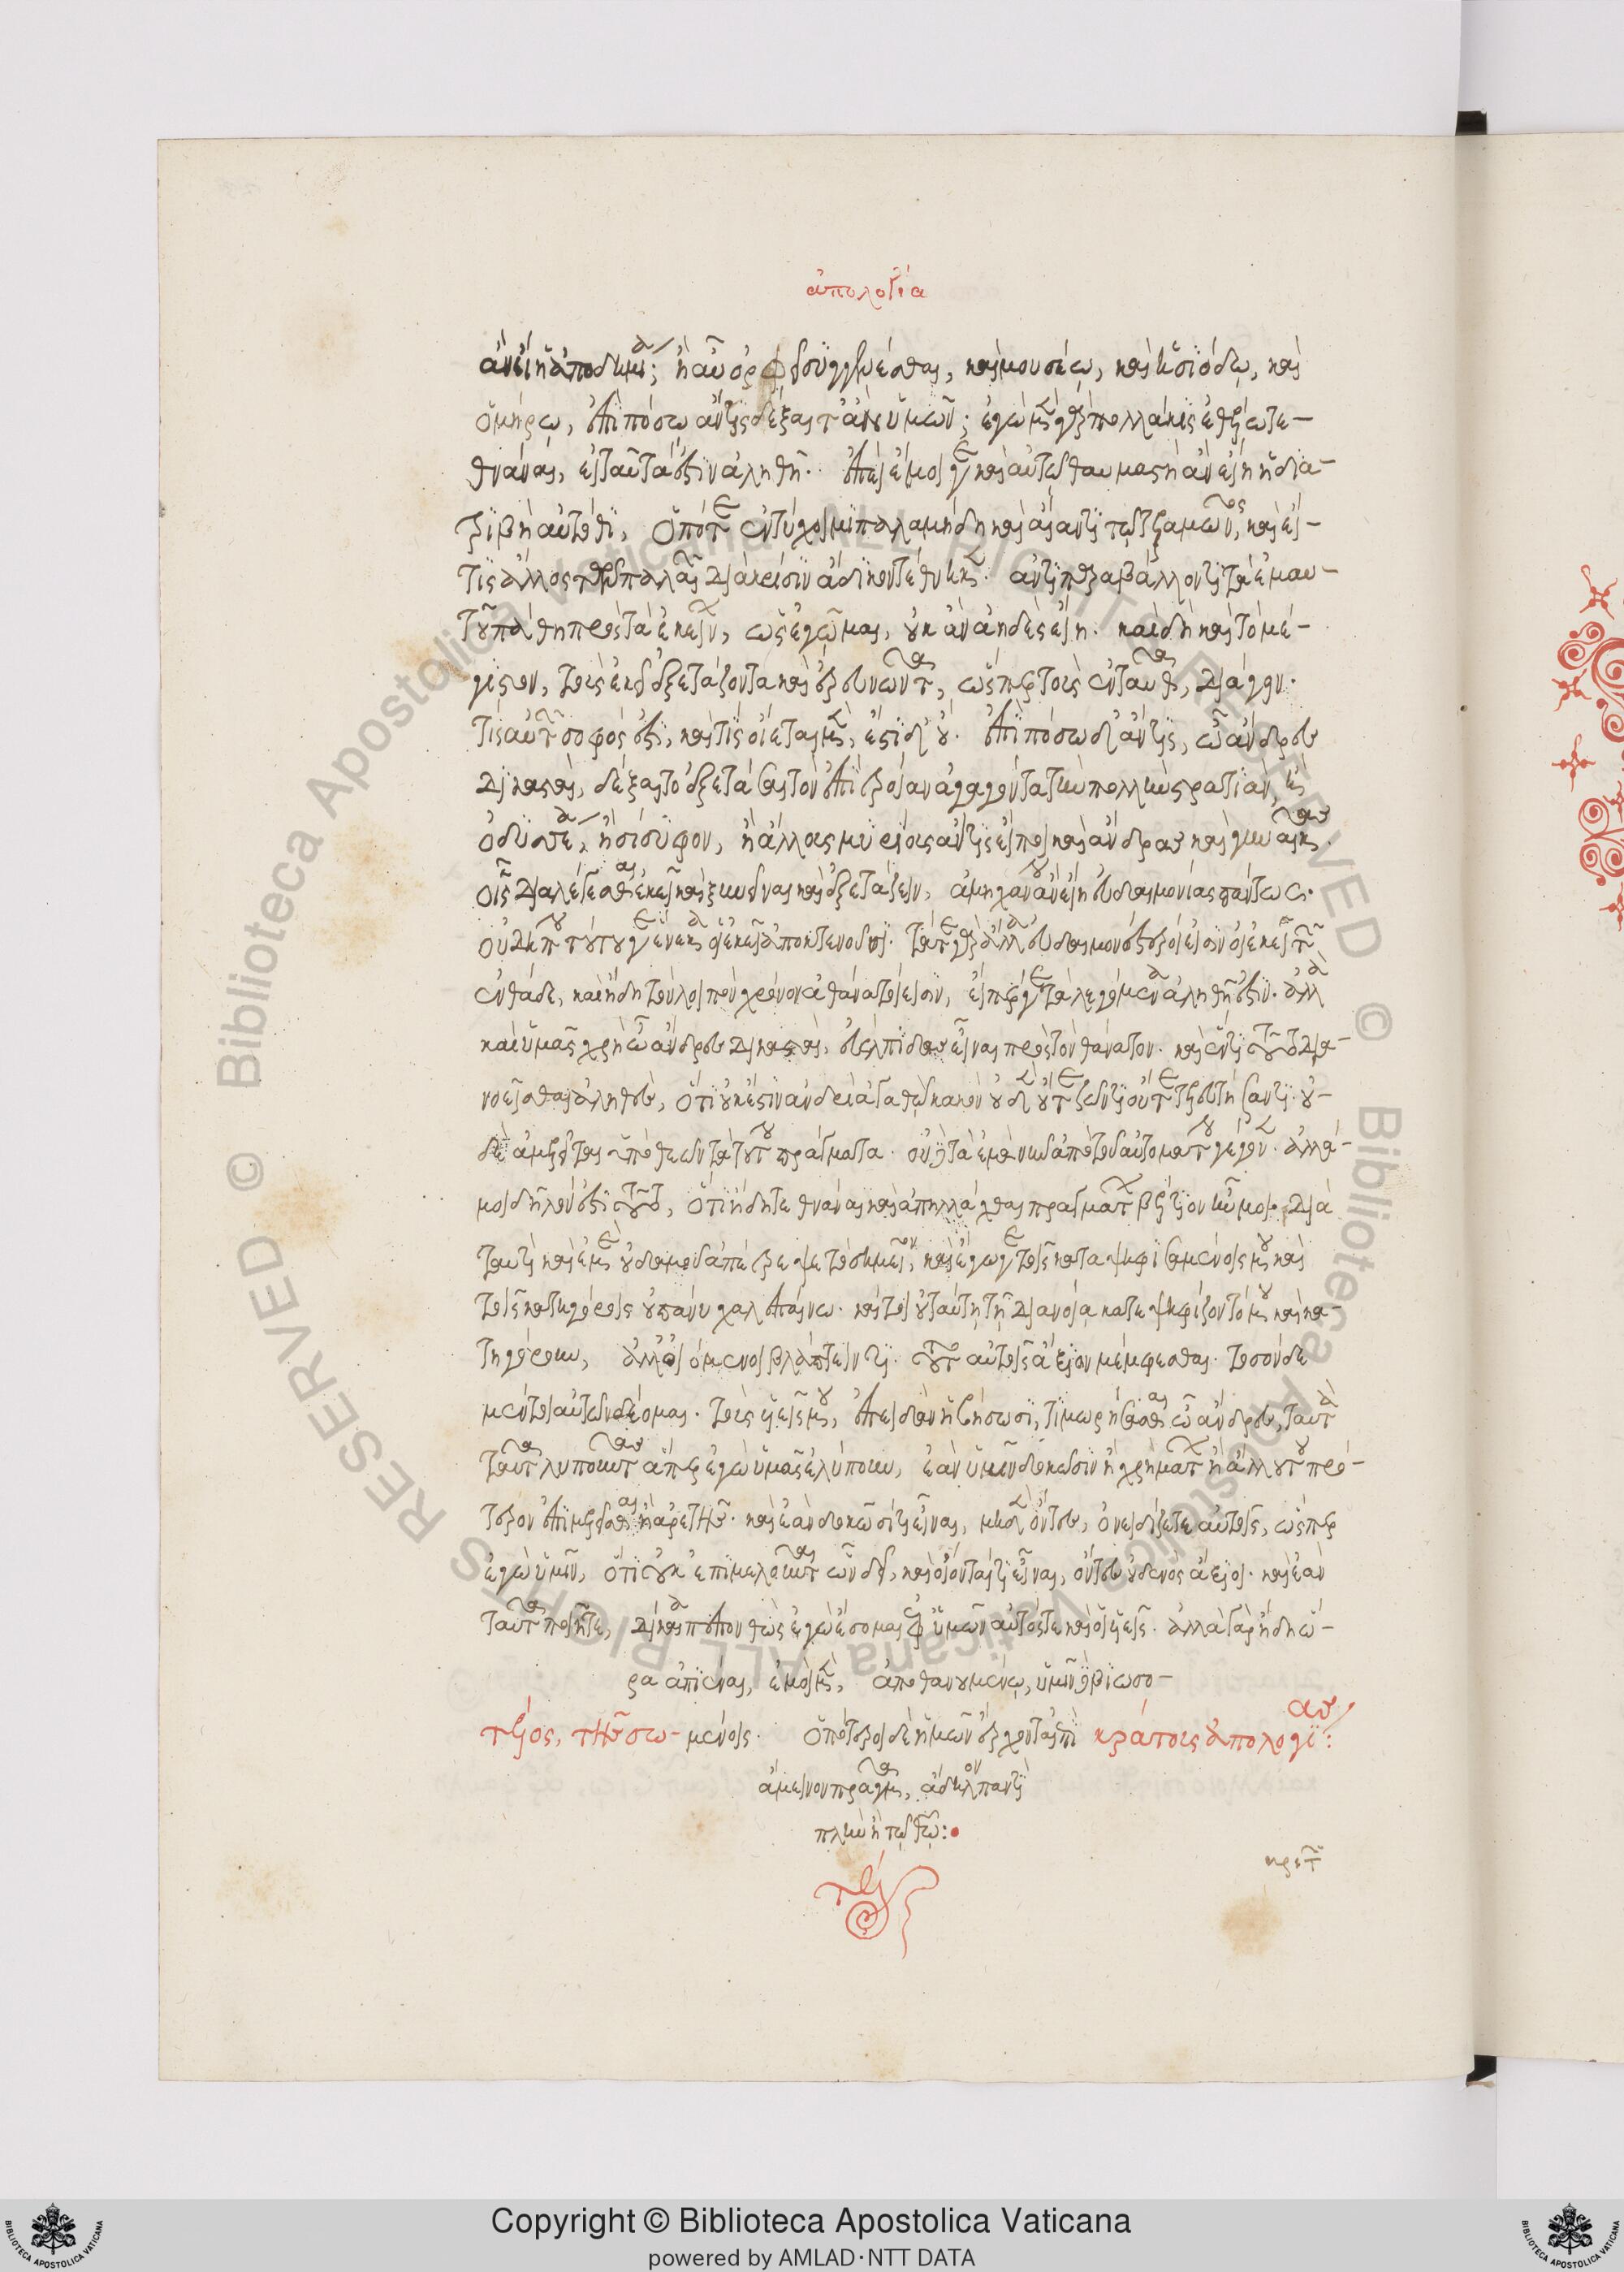 ἀπολογία
ἂν εἴη ἀποδημία; ἢ αὖ ὀρφεῖ συγγενέσθαι, καὶ μουσαίῳ, καὶ ἡσιόδῳ, καὶ
ὁμήρῳ, ἐπὶ πόσῳ ἄν τις δέξαιτ' ἂν ὑμῶν; ἐγὼ μὲν γὰρ πολλάκις ἐθέλω τε-
θνάναι, εἰ ταῦτά ἐστιν ἀληθῆ. ἐπεὶ ἔμοιγε καὶ αὐτῷ θαυμαστὴ ἂν εἴη ἡ δια-
τριβὴ αὐτόθι, ὁπότε ἐντύχοιμι παλαμήδει καὶ αἴαντι τῷ τελαμῶνος, καὶ εἴ
τις ἄλλος τῶν παλαιῶν διὰ κρίσιν ἄδικον τέθνηκεν. ἀντιπαραβάλλοντι τὰ ἐμαυ-
τοῦ πάθη πρὸς τὰ ἐκείνων, ὡς ἐγᾦμαι, οὐκ ἂν ἀηδὲς εἴη. καὶ δὴ καὶ τὸ μέ-
γιστον, τοὺς ἐκεῖ ἐξετάζοντα καὶ ἐρευνῶντα, ὥσπερ τοὺς ἐνταῦθα, διάγειν.
τίς αὐτῶν σοφός ἐστι, καὶ τίς οἴεται μέν, ἔστι δ' οὔ. ἐπὶ πόσῳ δ' ἄν τις, ὦ ἄνδρες
δικασταί, δέξαιτο ἐξετάσαι τὸν ἐπὶ τροίαν ἀγαγόντα τὴν πολλὴν στρατιάν, ἢ
ὀδυσσέα, ἢ σίσυφον, ἢ ἄλλους μυρίους ἄν τις εἴποι καὶ ἄνδρας καὶ γυναῖκας.
οἷς διαλέγεσθαι ἐκεῖ καὶ ξυνεῖναι καὶ ἐξετάζειν, ἀμήχανον ἂν εἴη εὐδαιμονίας πάντως.
οὐ δήπου τούτου γε ἕνεκα οἱ ἐκεῖ ἀποκτείνουσι. τά τε γὰρ ἄλλα εὐδαιμονέστεροί εἰσιν οἱ ἐκεῖ τῶν
ἐνθάδε, καὶ ἤδη τὸν λοιπὸν χρόνον ἀθάνατοί εἰσιν, εἴπερ γε τὰ λεγόμενα ἀληθῆ ἐστιν. ἀλλὰ
καὶ ὑμᾶς χρὴ ὦ ἄνδρες δικασταί, εὐέλπιδας εἶναι πρὸς τὸν θάνατον. καὶ ἕν τι τοῦτο δια-
νοεῖσθαι ἀληθές, ὅτι οὐκ ἔστιν ἀνδρὶ ἀγαθῷ κακὸν οὐδὲν οὔτε ζῶντι οὔτε τελευτήσαντι. οὐ-
δὲ ἀμελεῖται ὑπὸ θεῶν τὰ τούτου πράγματα. οὐδὲ τὰ ἐμὰ νῦν ἀπὸ τοῦ αὐτομάτου γέγονεν. ἀλλά
μοι δῆλόν ἐστι τοῦτο, ὅτι ἤδη τεθνάναι καὶ ἀπηλλάχθαι πραγμάτων βέλτιον ἦν μοι. διὰ
τοῦτο καὶ ἐμὲ οὐδαμοῦ ἀπέτρεψε τὸ σημεῖον, καὶ ἔγωγε τοῖς καταψηφισαμένοις μου καὶ
τοῖς κατηγόροις οὐ πάνυ χαλεπαίνω. καίτοι οὐ ταύτῃ τῇ διανοίᾳ κατεψηφίζοντό μου καὶ κα-
τηγόρουν, ἀλλ' οἰόμενοι βλάπτειν τι. τοῦτο αὐτοῖς ἄξιον μέμφεσθαι. τοσόνδε
μέντοι αὐτῶν δέομαι. τοὺς υἱεῖς μου, ἐπειδὰν ἡβήσωσι, τιμωρήσασθε ὦ ἄνδρες, ταὐτὰ
ταῦτα λυποῦντες ἅπερ ἐγὼ ὑμᾶς ἐλύπουν, ἐὰν ὑμῖν δοκῶσιν ἢ χρημάτων ἢ ἄλλου του πρό-
τερον ἐπιμελεῖσθαι ἢ ἀρετῆς. καὶ ἐὰν δοκῶσί τι εἶναι, μηδὲν ὄντες, ὀνειδίζετε αὐτοῖς, ὥσπερ
ἐγὼ ὑμῖν, ὅτι οὐκ ἐπιμελοῦνται ὧν δεῖ, καὶ οἴονταί τι εἶναι, ὄντες οὐδενὸς ἄξιοι. καὶ ἐὰν
ταῦτα ποιῆτε, δίκαια πεπονθὼς ἐγὼ ἔσομαι ὑφ' ὑμῶν αὐτός τε καὶ οἱ υἱεῖς. ἀλλὰ γὰρ ἤδη ὥ-
ρα ἀπιέναι, ἐμοὶ μέν, ἀποθανουμένῳ, ὑμῖν δὲ βιωσο-
τέλος, τῆς σω- μένοις. ὁπότεροι δὲ ἡμῶν ἔρχονται ἐπὶ κράτους ἀπολογίας:
ἄμεινον πρᾶγμα, ἄδηλον παντὶ
πλὴν ἢ τῷ θεῷ:
κρίτων